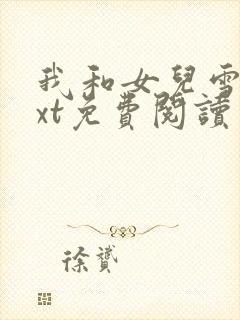 我和女兒雪
xt免費閱讀
徐贇